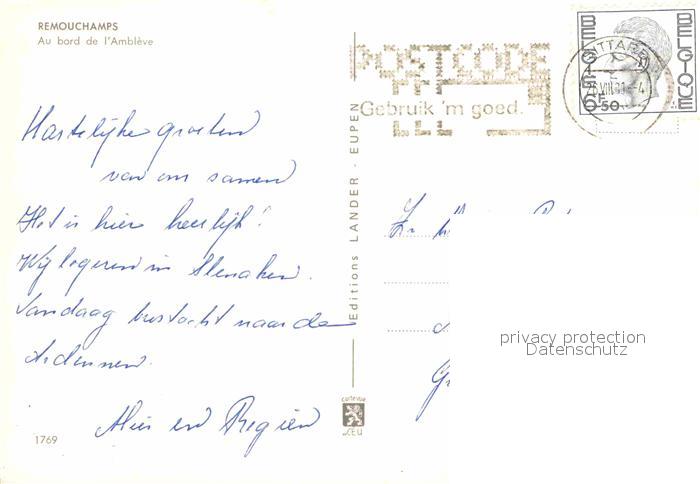 REMOUCHAMPS
Au bord de l'Amblève
POSTCODE
Gebruik 'm goed.
SITTARD
BELGIE-BELGIQUE
6F50
Hartelijke groeten
van ons samen
Het is hier heerlijk!
Wij logeren in Slenaken.
Vandaag bustocht naar de
Ardennen.
en
Editions LANDER - EUPEN
privacy protection
Datenschutz
1769